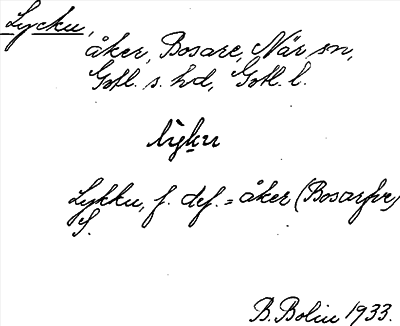 Lycku,
åker, Bosarve, När sn,
Gotl. s. hd, Gotl. l.
lyku
Lykku, f. def. = åker (Bosarfve)
S.
B. Bolin 1933.